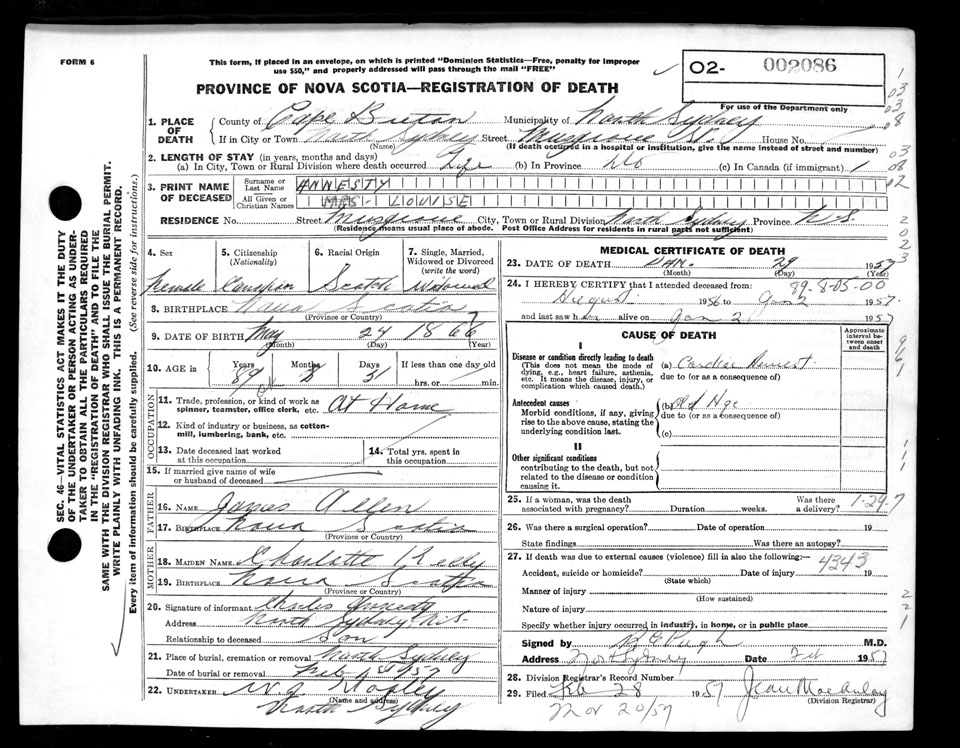 FORM 6
This form, if placed in an envelope, on which is printed "Dominion Statistics—Free, penalty for improper
use $50," and properly addressed will pass through the mail "FREE"
PROVINCE OF NOVA SCOTIA—REGISTRATION OF DEATH
O2- 002086
For use of the Department only
1. PLACE OF DEATH
County of Cape Breton Municipality of North Sydney
If in City or Town North Sydney Street Musgrave St. House No.
(Name) (If death occurred in a hospital or institution, give the name instead of street and number)
2. LENGTH OF STAY (in years, months and days)
(a) In City, Town or Rural Division where death occurred Life (b) In Province do (c) In Canada (if immigrant)
3. PRINT NAME OF DECEASED
Surname or Last Name ANNESTY
All Given or Christian Names MRS. LOUISE
RESIDENCE No. Street Musgrave City, Town or Rural Division North Sydney Province N.S.
(Residence means usual place of abode. Post Office Address for residents in rural parts not sufficient)
4. Sex
5. Citizenship (Nationality)
6. Racial Origin
7. Single, Married, Widowed or Divorced (write the word)
Female Canadian Scotch Widowed
8. BIRTHPLACE Nova Scotia
(Province or Country)
9. DATE OF BIRTH May 24 1866
(Month) (Day) (Year)
10. AGE in Years Months Days If less than one day old
89 8 5 hrs. or min.
OCCUPATION
11. Trade, profession, or kind of work as
spinner, teamster, office clerk, etc. At Home
12. Kind of industry or business, as cotton-
mill, lumbering, bank, etc.
13. Date deceased last worked
at this occupation
14. Total yrs. spent in
this occupation
15. If married give name of wife
or husband of deceased
FATHER
16. NAME James Allen
17. BIRTHPLACE Nova Scotia
(Province or Country)
MOTHER
18. MAIDEN NAME Charlotte Kelby
19. BIRTHPLACE Nova Scotia
(Province or Country)
20. Signature of informant Charles Annesty
Address North Sydney, N.S.
Relationship to deceased Son
21. Place of burial, cremation or removal North Sydney
Date of burial or removal Feb 1st 1957
22. UNDERTAKER
(Name and address)
North Sydney
MEDICAL CERTIFICATE OF DEATH
23. DATE OF DEATH JAN. 29 1957
(Month) (Day) (Year)
89-8-05-00
24. I HEREBY CERTIFY that I attended deceased from:
August 1956 to Jan 2 1957
and last saw her alive on Jan 2 1957
CAUSE OF DEATH
Approximate interval between onset and death
I
Disease or condition directly leading to death
(This does not mean the mode of dying, e.g., heart failure, asthenia, etc. It means the disease, injury, or complication which caused death.)
(a) Cardiac Arrest
due to (or as a consequence of)
Antecedent causes
Morbid conditions, if any, giving rise to the above cause, stating the underlying condition last.
(b) Old Age
due to (or as a consequence of)
(c)
II
Other significant conditions
contributing to the death, but not related to the disease or condition causing it.
25. If a woman, was the death
associated with pregnancy? Duration weeks. Was there a delivery?
1-24-7
26. Was there a surgical operation? Date of operation 19
State findings Was there an autopsy?
27. If death was due to external causes (violence) fill in also the following:—
4343
Accident, suicide or homicide? Date of injury 19
(State which)
Manner of injury
(How sustained)
Nature of injury
Specify whether injury occurred in industry, in home, or in public place
Signed by Pugh M.D.
Address North Sydney Date Feb 1957
28. Division Registrar's Record Number
29. Filed Feb 28 1957 Jean Macaulay
(Division Registrar)
Mar 20/57
SEC. 46—VITAL STATISTICS ACT MAKES IT THE DUTY
OF THE UNDERTAKER OR PERSON ACTING AS UNDER-
TAKER TO OBTAIN ALL THE PARTICULARS REQUIRED
IN THE "REGISTRATION OF DEATH" AND TO FILE THE
SAME WITH THE DIVISION REGISTRAR WHO SHALL ISSUE THE BURIAL PERMIT.
WRITE PLAINLY WITH UNFADING INK. THIS IS A PERMANENT RECORD.
Every item of information should be carefully supplied. (See reverse side for instructions.)